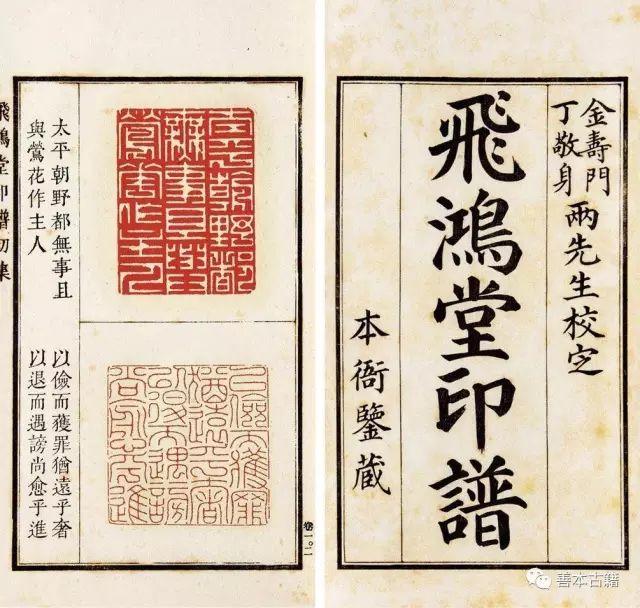 金壽門
丁敬身
兩先生校定
飛鴻堂印譜
本衙鑒藏
太平朝野都無事且
與鶯花作主人
以儉而獲罪猶遠乎奢
以退而遇謗尚愈乎進
飛鴻堂印譜初集
卷一〇二
善本古籍